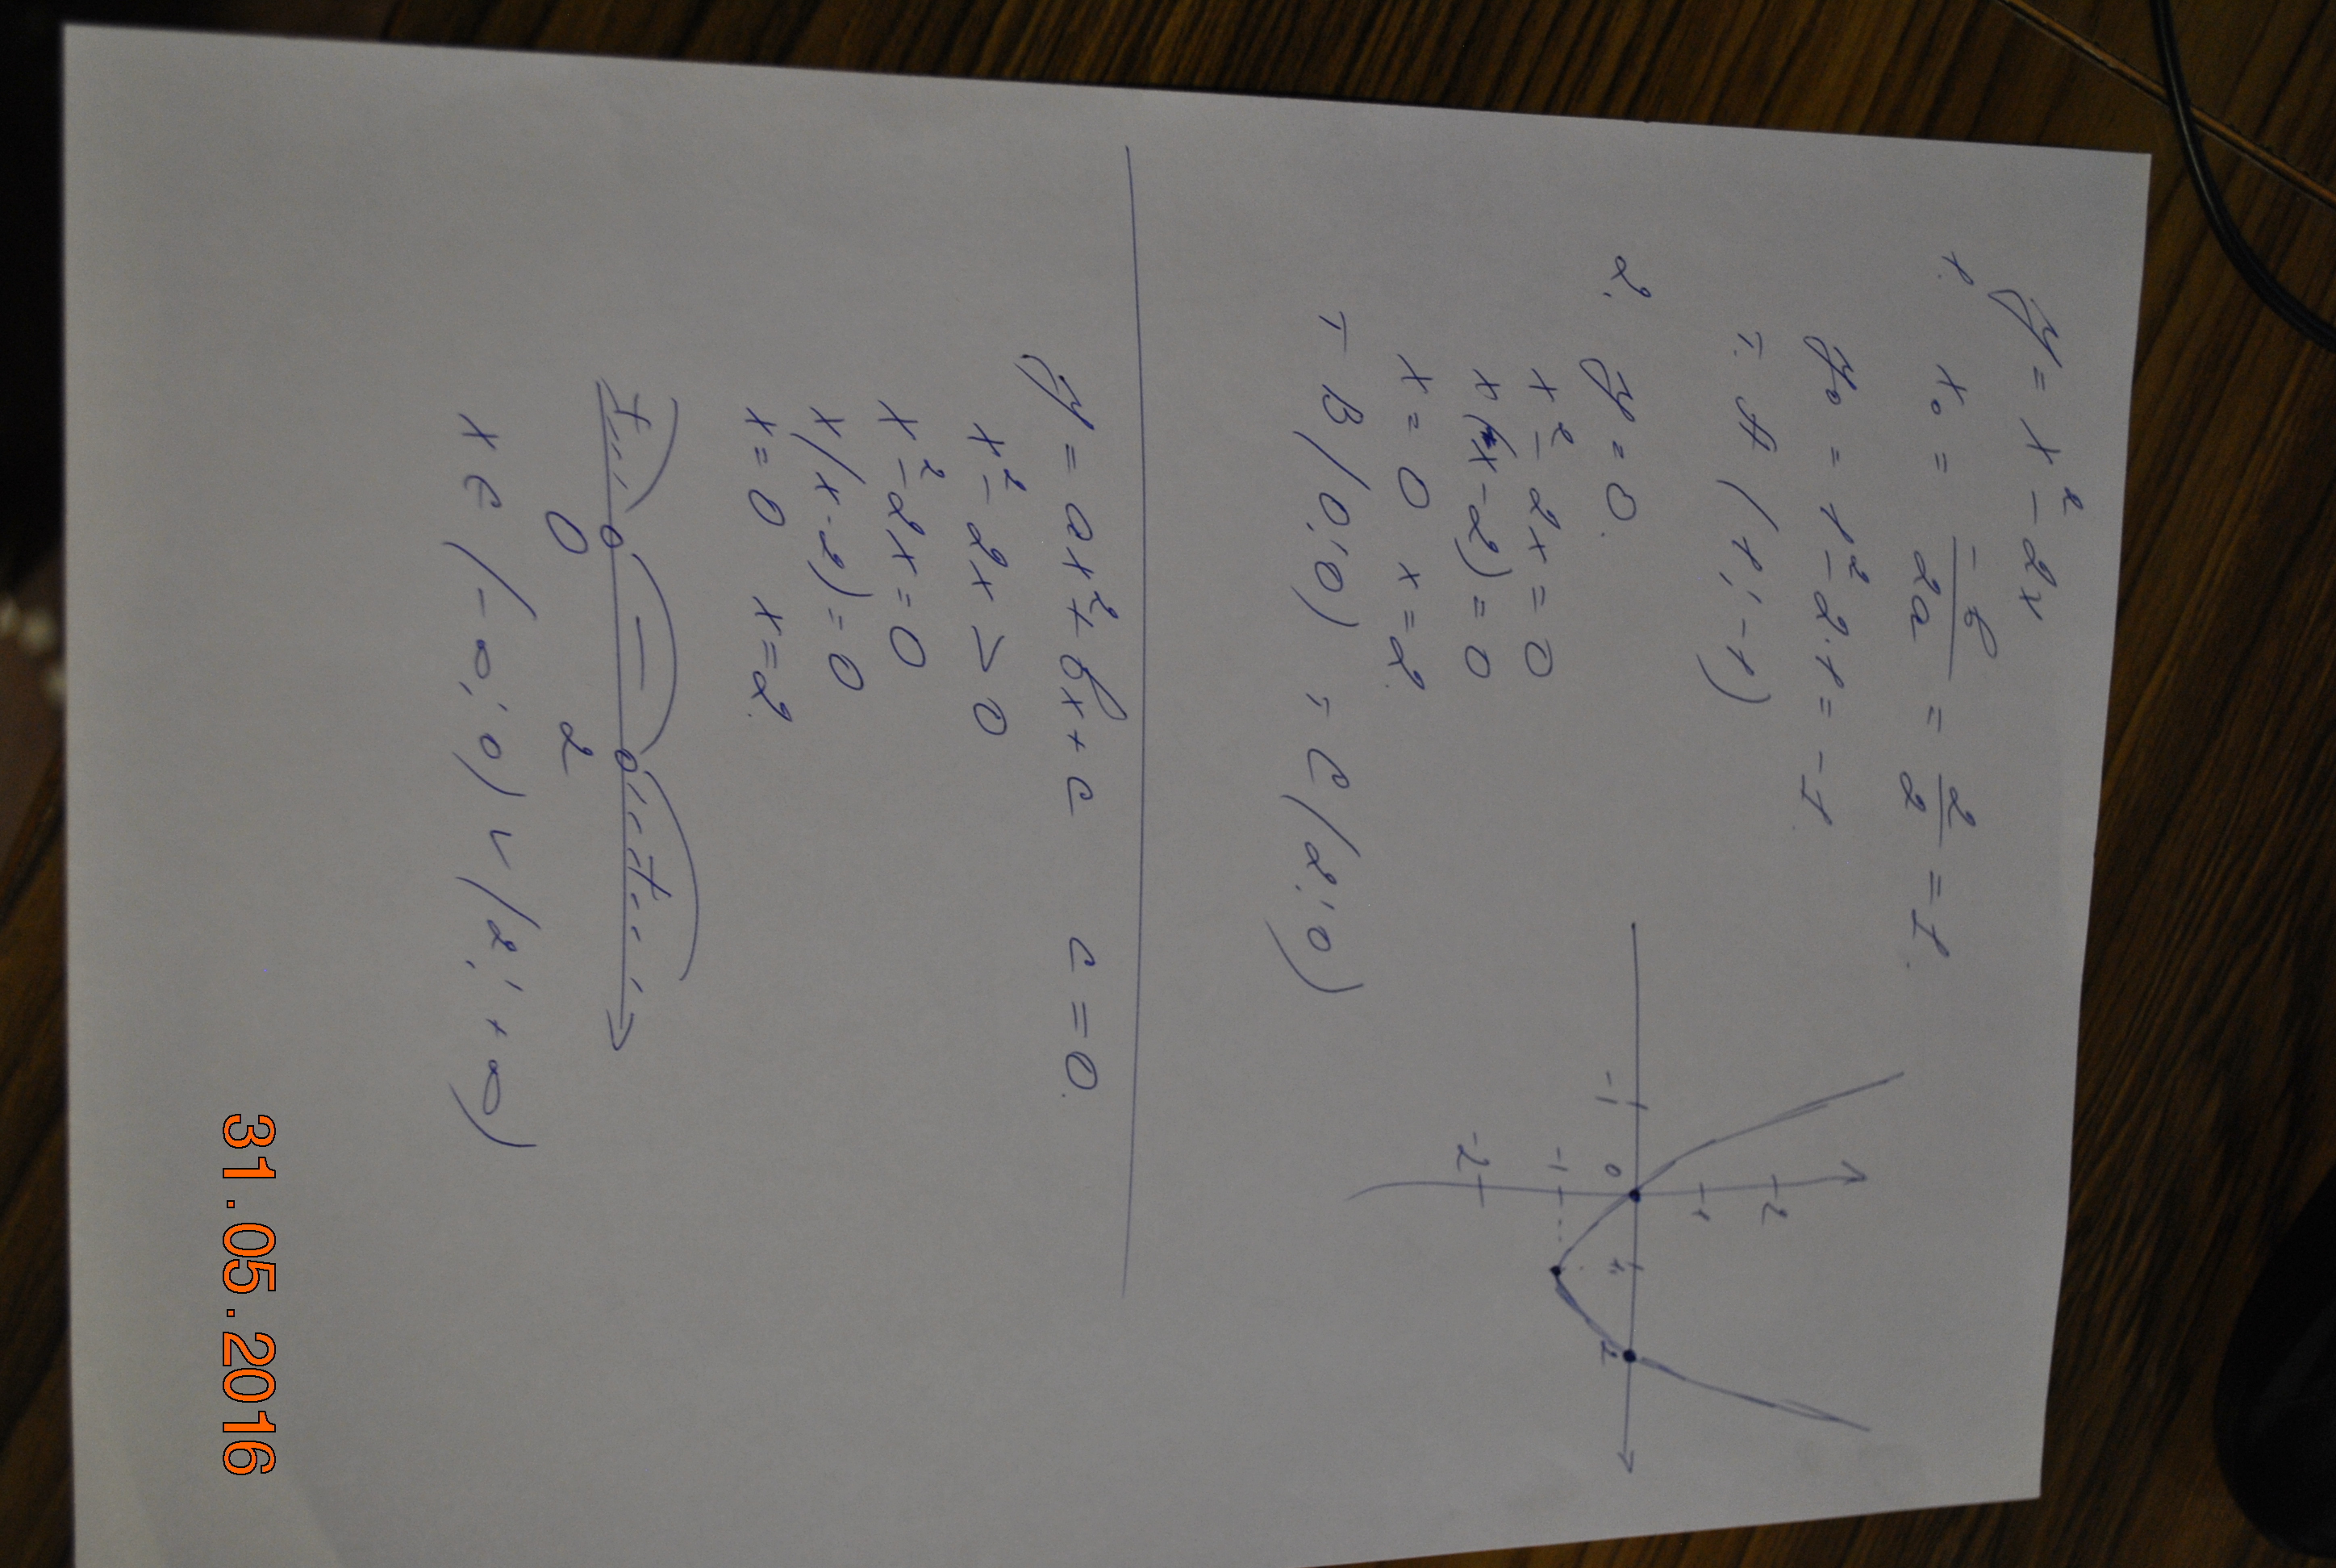 y = x² - 2x
1. x₀ = -b/2a = 2/2 = 1.
y₀ = 1² - 2·1 = -1.
т. A (1; -1)
2. y = 0.
x² - 2x = 0
x(x - 2) = 0
x = 0 x = 2.
т B (0; 0) т C (2; 0)
2
1
-1 0 1 2
-1
-2
y = ax² + bx + c c = 0.
x² - 2x > 0
x² - 2x = 0
x(x - 2) = 0
x = 0 x = 2.
+ - +
0 2
x ∈ (-∞; 0) ∪ (2; +∞)
31.05.2016